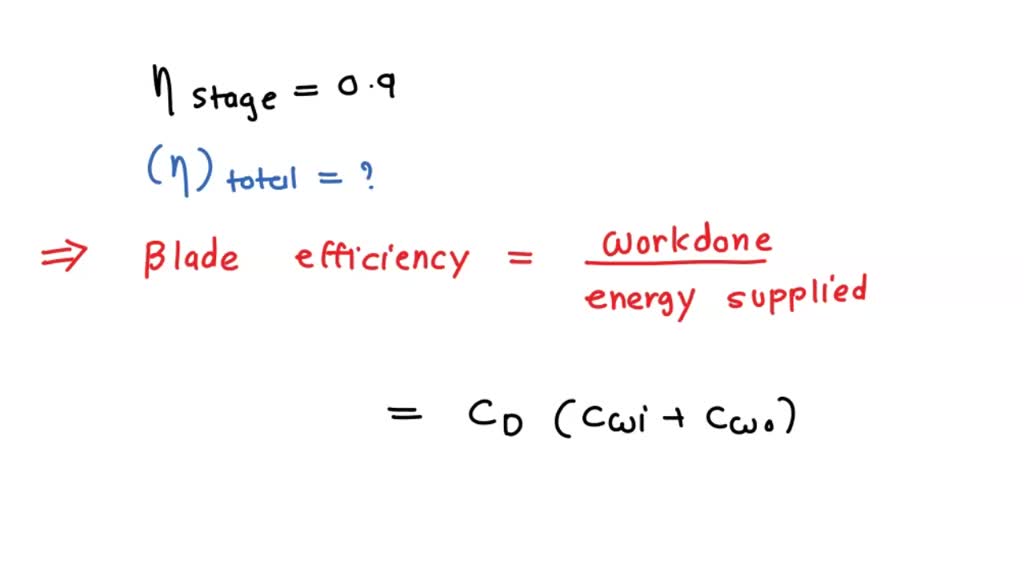 η stage = 0.9
(η) total = ?
⇒ Blade efficiency = workdone / energy supplied
= CD (Cωi + Cωo)